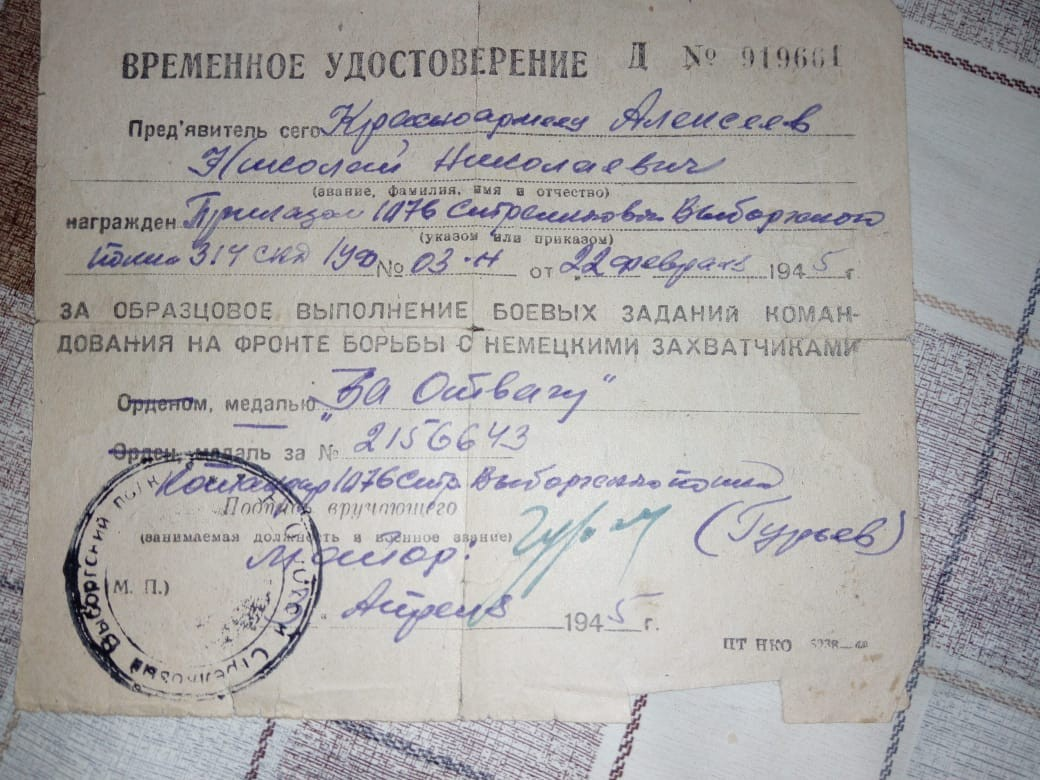 ВРЕМЕННОЕ УДОСТОВЕРЕНИЕ Д № 919661
Пред'явитель сего Красноармеец Алексеев
Николай Николаевич
(звание, фамилия, имя и отчество)
награжден Приказом 1076 Стрелкового Выборгского
(указом или приказом)
полка 314 скд 1УФ № 03-н от 22 февраля 1945 г.
ЗА ОБРАЗЦОВОЕ ВЫПОЛНЕНИЕ БОЕВЫХ ЗАДАНИЙ КОМАН-
ДОВАНИЯ НА ФРОНТЕ БОРЬБЫ С НЕМЕЦКИМИ ЗАХВАТЧИКАМИ
Орденом, медалью „За Отвагу"
Орден, медаль за № 2156643
Командир 1076 стр Выборгского полка
Подпись вручающего
(занимаемая должность и военное звание)
майор: (Гурьев)
М. П.)
Апреля 1945 г.
ПТ НКО
Стрелковый Выборгский полк